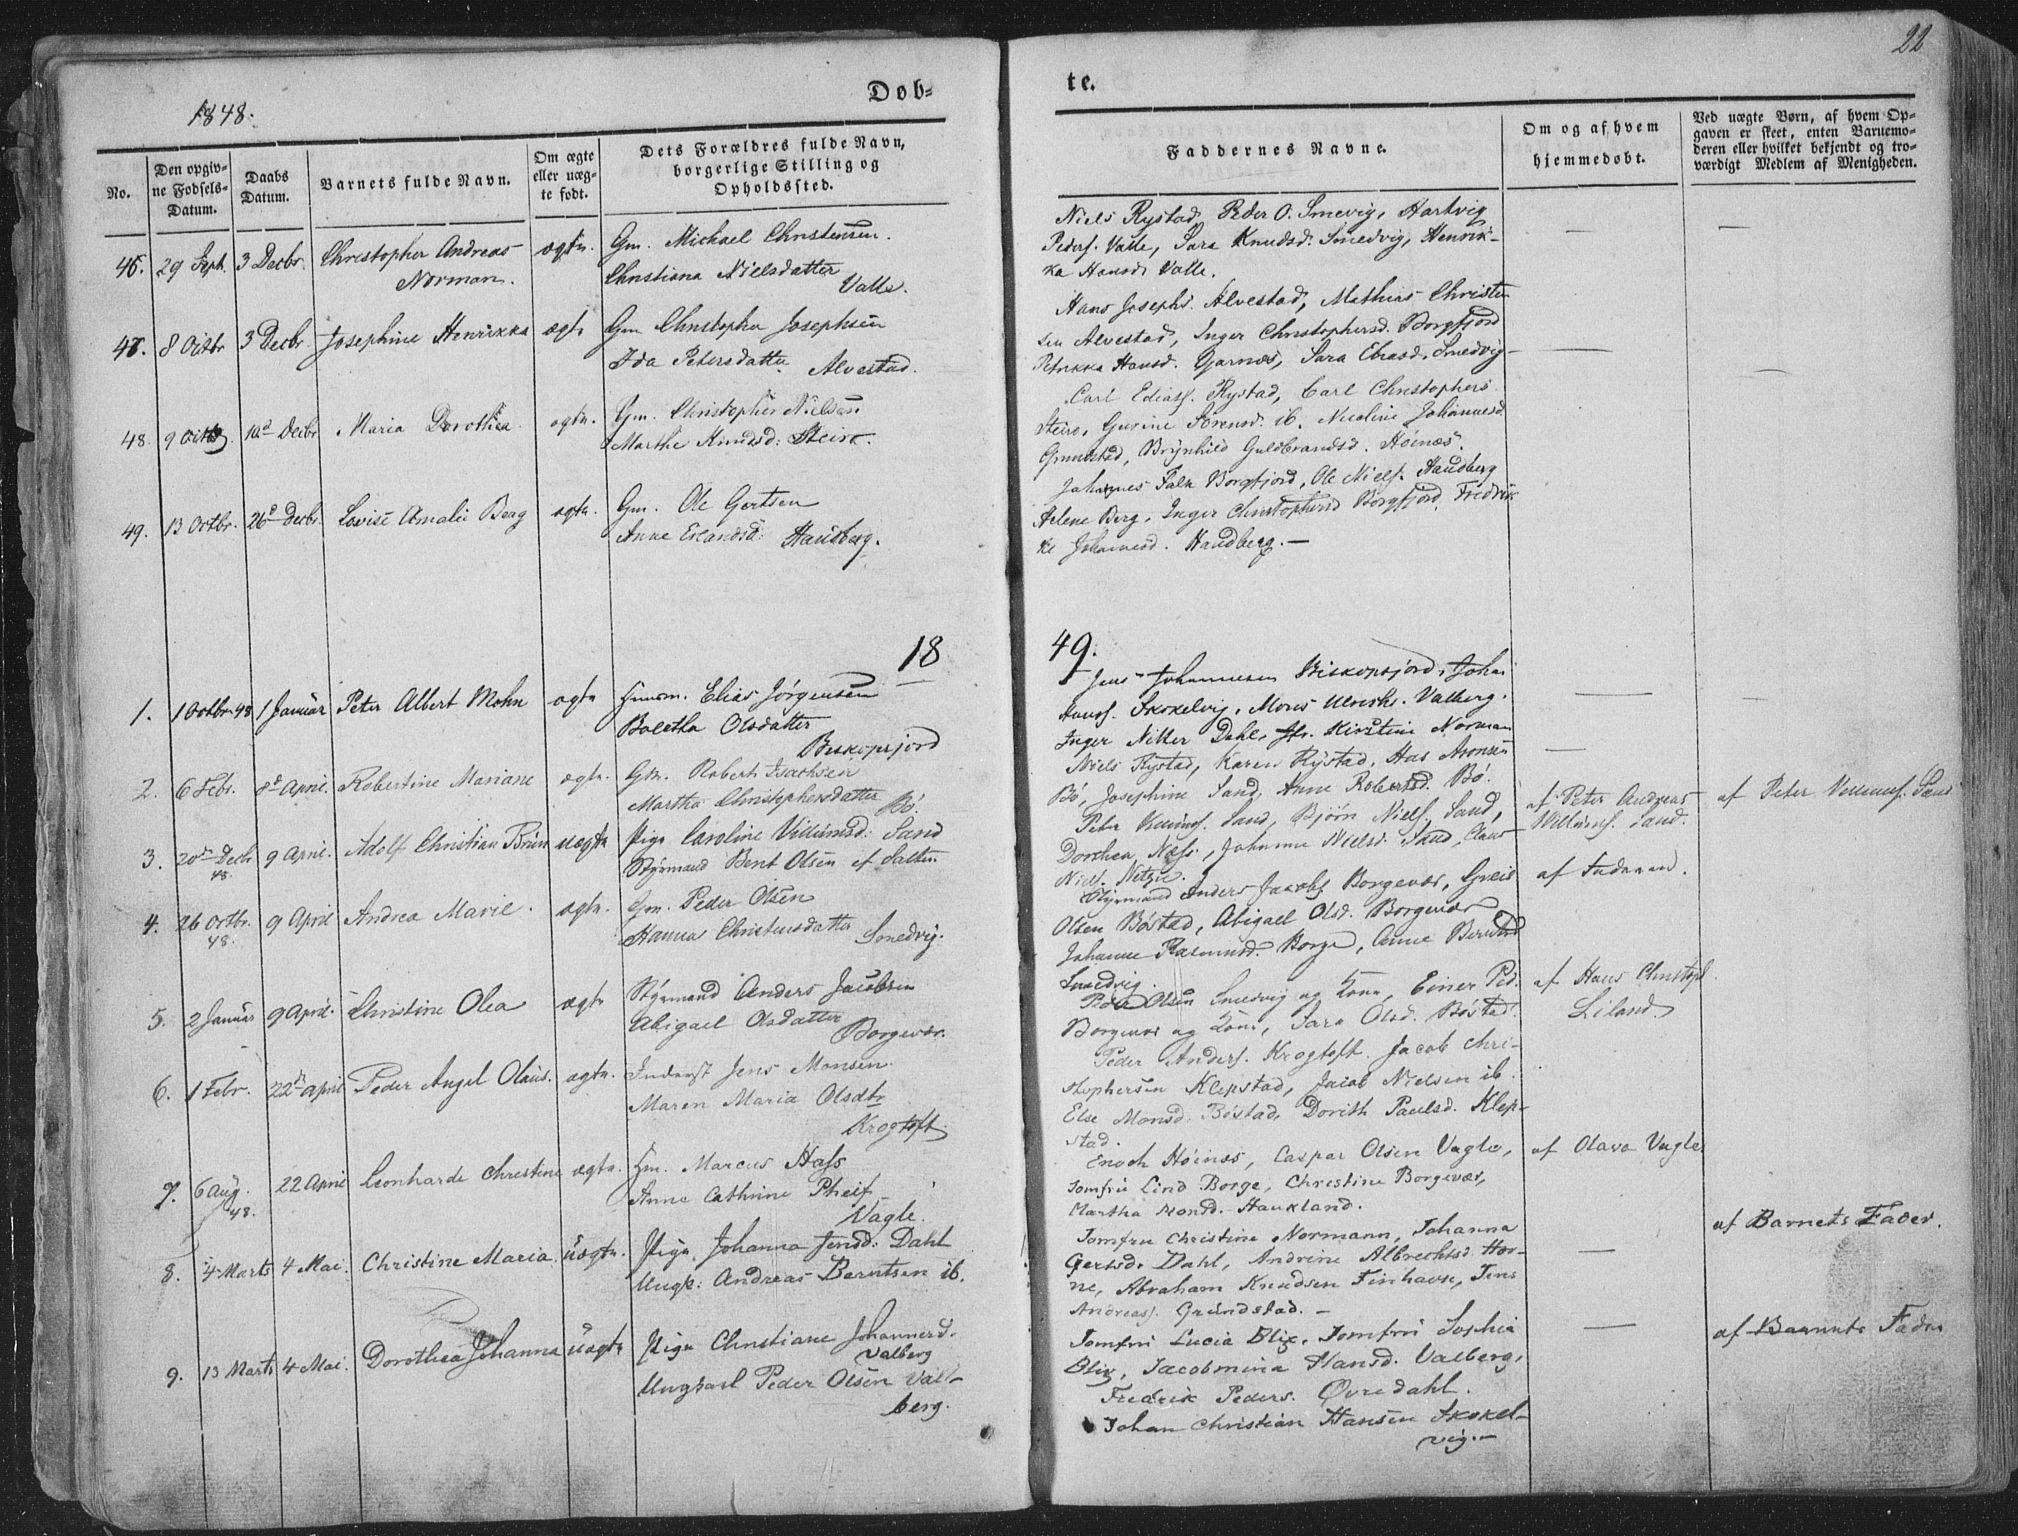 22
1848.
Døb=
te.
No.
Den opgiv-
ne Fødsels-
Datum.
Daabs
Datum.
Barnets fulde Navn.
Om ægte
eller uæg-
te født.
Dets Forældres fulde Navn,
borgerlige Stilling og
Opholdssted.
Faddernes Navne.
Om og af hvem
hjemmedøbt.
Ved uægte Børn, af hvem Op-
gaven er skeet, enten Barnemo-
deren eller hvilket bekjendt og tro-
værdigt Medlem af Menigheden.
46. 29 Sept. 3 Decbr. Christopher Andreas ægte. Gm. Michael Christensen.
Norman. Christiana Nielsdatter
Valle.
Niels Rystad, Peder O. Smevig, Hartvig
Peders. Valle, Sara Knudsd. Smedvig, Henrik-
ka Hansd. Valle.
47. 8 Octbr 3 Decbr. Josephine Henrikka ægte Gm. Christopher Josephsen
Ida Petersdatter. Alvestad.
Hans Josephs. Alvestad, Mathias Christen
sen Alvestad, Inger Christophersd. Borgfjord
Petrikka Hansd. Gjarnæs, Sara Eliasd. Smedvig
48. 9 Octbr 10d Decbr Maria Dorothea. ægte. Gm. Christopher Nielsen
Marthe Knudsd: Steiro.
Carl Ediass. Rystad, Carl Christophers.
Steiro, Gurine Sørensd. ib. Nicoline Johannesd.
Grundstad, Brynhild Guldbrandsd. Høinæs.
49. 13 Octbr. 26d Decbr. Lovise Amalie Berg ægte. Gm. Ole Gertsen
Anne Erlandsd: Haudberg.
Johannes Falk Borgfjord, Ole Niels. Haudberg
Helene Berg, Inger Christophersd Borgfjord, Fredrik
ke Johannesd. Haudberg. —
18 49.
1. 1 Octbr 48 1 Januar Peter Albert Mohn ægte Huusm. Elias Jørgensen
Boletha Olsdatter
Biskopsjord
Jens Johannesen Biskopsjord, Johan
Hanss. Skokelvig, Mons Ulriks. Valberg.
Inger Nitter Dahl, Jfr. Kirstine Norman
2. 6 Febr. 8d April. Robertine Mariane ægte. Gm. Robert Isachsen
Martha Christophersdatter Bø.
Niels Rystad, Karen Rystad, Has Aronsen
Bø, Josephine Sand, Anne Robertsd. Bø.
3. 20de Decbr 48. 9 April. Adolf Christian Brun uægte Pige Caroline Villumsd: Sand
Styrmand Bent Olsen af Salten
Peter Villums. Sand, Bjørn Niels. Sand,
Dorthea Næss, Johanne Nielsd. Sand, Claus
Niels. Netzin.
af Peter Andreas
Willums. Sand.
af Peter Villums. Sand
4. 26 Octbr. 48. 9 April Andrea Marie. ægte. Gm. Peder Olsen
Hanna Christensdatter Smedvig.
Styrmand Anders Jacobs Borgevær, Greis
Olsen Bøstad, Abigael Olsd. Borgevær
Johanne Rasmusd. Borge, Anne Berntsd
Smedvig.
af Faderen.
5. 2 Januar 9 April. Christine Olea ægte Styrmand Anders Jacobsen
Abigael Olsdatter
Borgevær.
Peder Olsen Smedvig og Kone, Einer Ped.
Borgevær og Kone, Sara Olsd. Bøstad.
af Hans Christoph.
Liland.
6. 1 Febr. 22de April Peder Angel Olaus. ægte. Inderst Jens Monsen
Maren Maria Olsdtr
Krogtoft.
Peder Anders. Krogtoft. Jacob Chri-
stophersen Klepstad, Jacob Nielsen ib.
Else Monsd. Bøstad, Dorith Paulsd. Klep-
stad.
7. 6 Aug. 48. 22 April Leonharde Christine ægte. Hm. Marcus Hass
Anne Cathrine Pheif
Vagle.
Enoch Høinæs, Caspar Olsen Vagle,
Jomfru Lind Borge, Christine Borgevær,
Martha Monsd. Haukland.
af Olava Vagle
8. 4 Marts 4 Mai. Christine Maria. uægte. Pige Johanna Jensd: Dahl
Ungk: Andreas Berntsen ib.
Jomfru Christine Normann, Johanna
Gertsd. Dahl, Andrine Albrechtsd. Hor-
ne, Abraham Knudsen Finhavn, Jens
Andreass. Grundstad. —
af Barnets Fader.
9. 13 Marts 4 Mai. Dorothea Johanna uægte Pige Christiane Johannesd.
Valberg
Ungkarl Peder Olsen Val-
berg.
Jomfru Lucia Blix, Jomfru Sophia
Blix, Jacobmina Hansd. Valberg,
Fredrik Peders. Øvredahl.
Johan Christian Hansen Skokel-
vig. —
af Barnets Fader